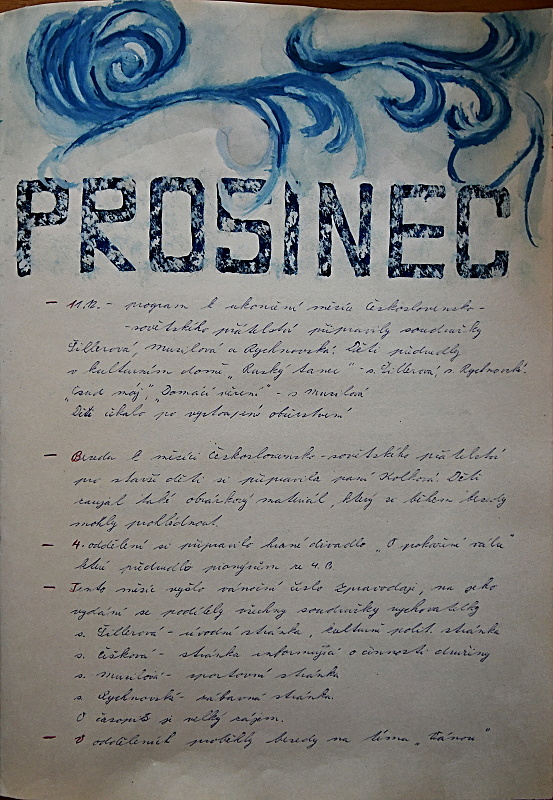 PROSINEC
- 11.12. - program k ukončení měsíce Československo-
-sovětského přátelství připravily soudružky
Tillerová, Musilová a Rychnovská. Děti předvedly
v kulturním domě „Ruský tanec" - s. Tillerová, s. Rychnovská.
„Osud můj", „Domácí vězení" - s. Musilová
Děti čekalo po vystoupení občerstvení
- Beseda k měsíci Československo-sovětského přátelství
pro starší děti si připravila paní Kolková. Děti
zaujal také obrázkový materiál, který se během besedy
mohly prohlédnout.
- 4. oddělení si připravilo hrané divadlo „O pokažení válu"
které předvedlo prvňákům ze 4.B
- Tento měsíc vyšlo vánoční číslo Zpravodaje, na jeho
vydání se podílely všechny soudružky vychovatelky
s. Tillerová - úvodní stránka, kulturně polit. stránka
s. Čišková - stránka informující o činnosti družiny
s. Musilová - sportovní stránka
s. Rychnovská - zábavná stránka.
O časopis je velký zájem.
- V odděleních proběhly besedy na téma „Vánoce"